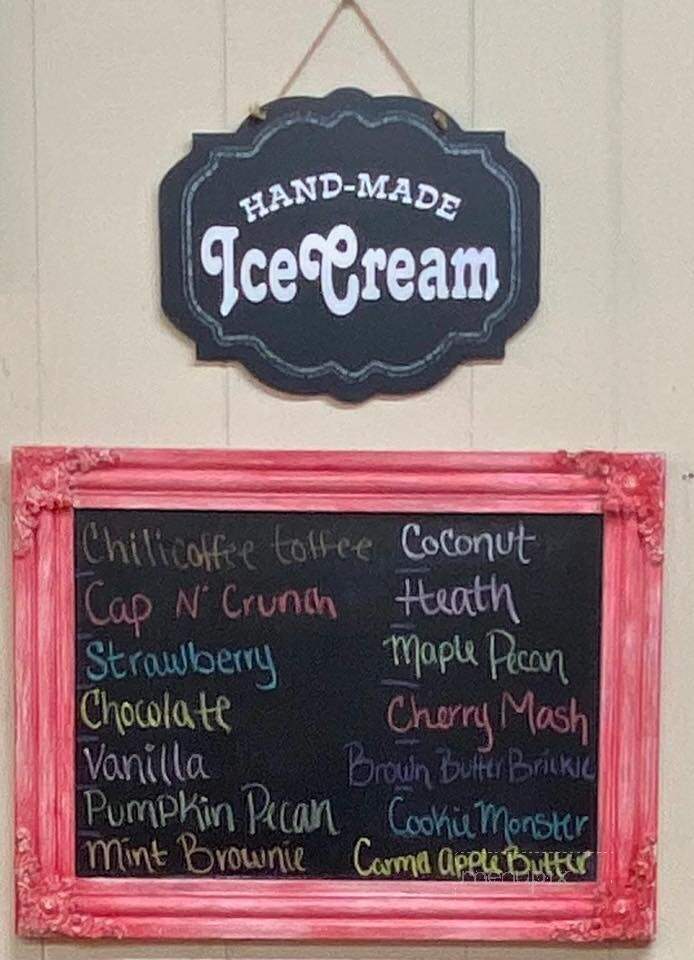 HAND-MADE
Ice Cream
Chilicoffee toffee
Cap N' Crunch
Strawberry
Chocolate
Vanilla
Pumpkin Pecan
Mint Brownie
Coconut
Heath
Maple Pecan
Cherry Mash
Brown Butter Brickle
Cookie Monster
Carml apple Butter
menupix